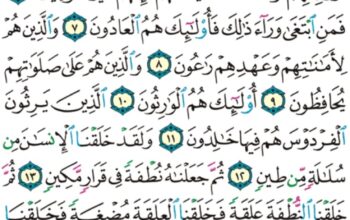 فَمَنِ ٱبۡتَغَىٰ وَرَآءَ ذَٰلِكَ فَأُوْلَٰٓئِكَ هُمُ ٱلۡعَادُونَ ٧ وَٱلَّذِينَ هُمۡ
لِأَمَٰنَٰتِهِمۡ وَعَهۡدِهِمۡ رَٰعُونَ ٨ وَٱلَّذِينَ هُمۡ عَلَىٰ صَلَوَٰتِهِمۡ
يُحَافِظُونَ ٩ أُوْلَٰٓئِكَ هُمُ ٱلۡوَٰرِثُونَ ١٠ ٱلَّذِينَ يَرِثُونَ
ٱلۡفِرۡدَوۡسَ هُمۡ فِيهَا خَٰلِدُونَ ١١ وَلَقَدۡ خَلَقۡنَا ٱلۡإِنسَٰنَ مِن
سُلَٰلَةٖ مِّن طِينٖ ١٢ ثُمَّ جَعَلۡنَٰهُ نُطۡفَةٗ فِي قَرَارٖ مَّكِينٖ ١٣ ثُمَّ
خَلَقۡنَا ٱلنُّطۡفَةَ عَلَقَةٗ فَخَلَقۡنَا ٱلۡعَلَقَةَ مُضۡغَةٗ فَخَلَقۡنَا